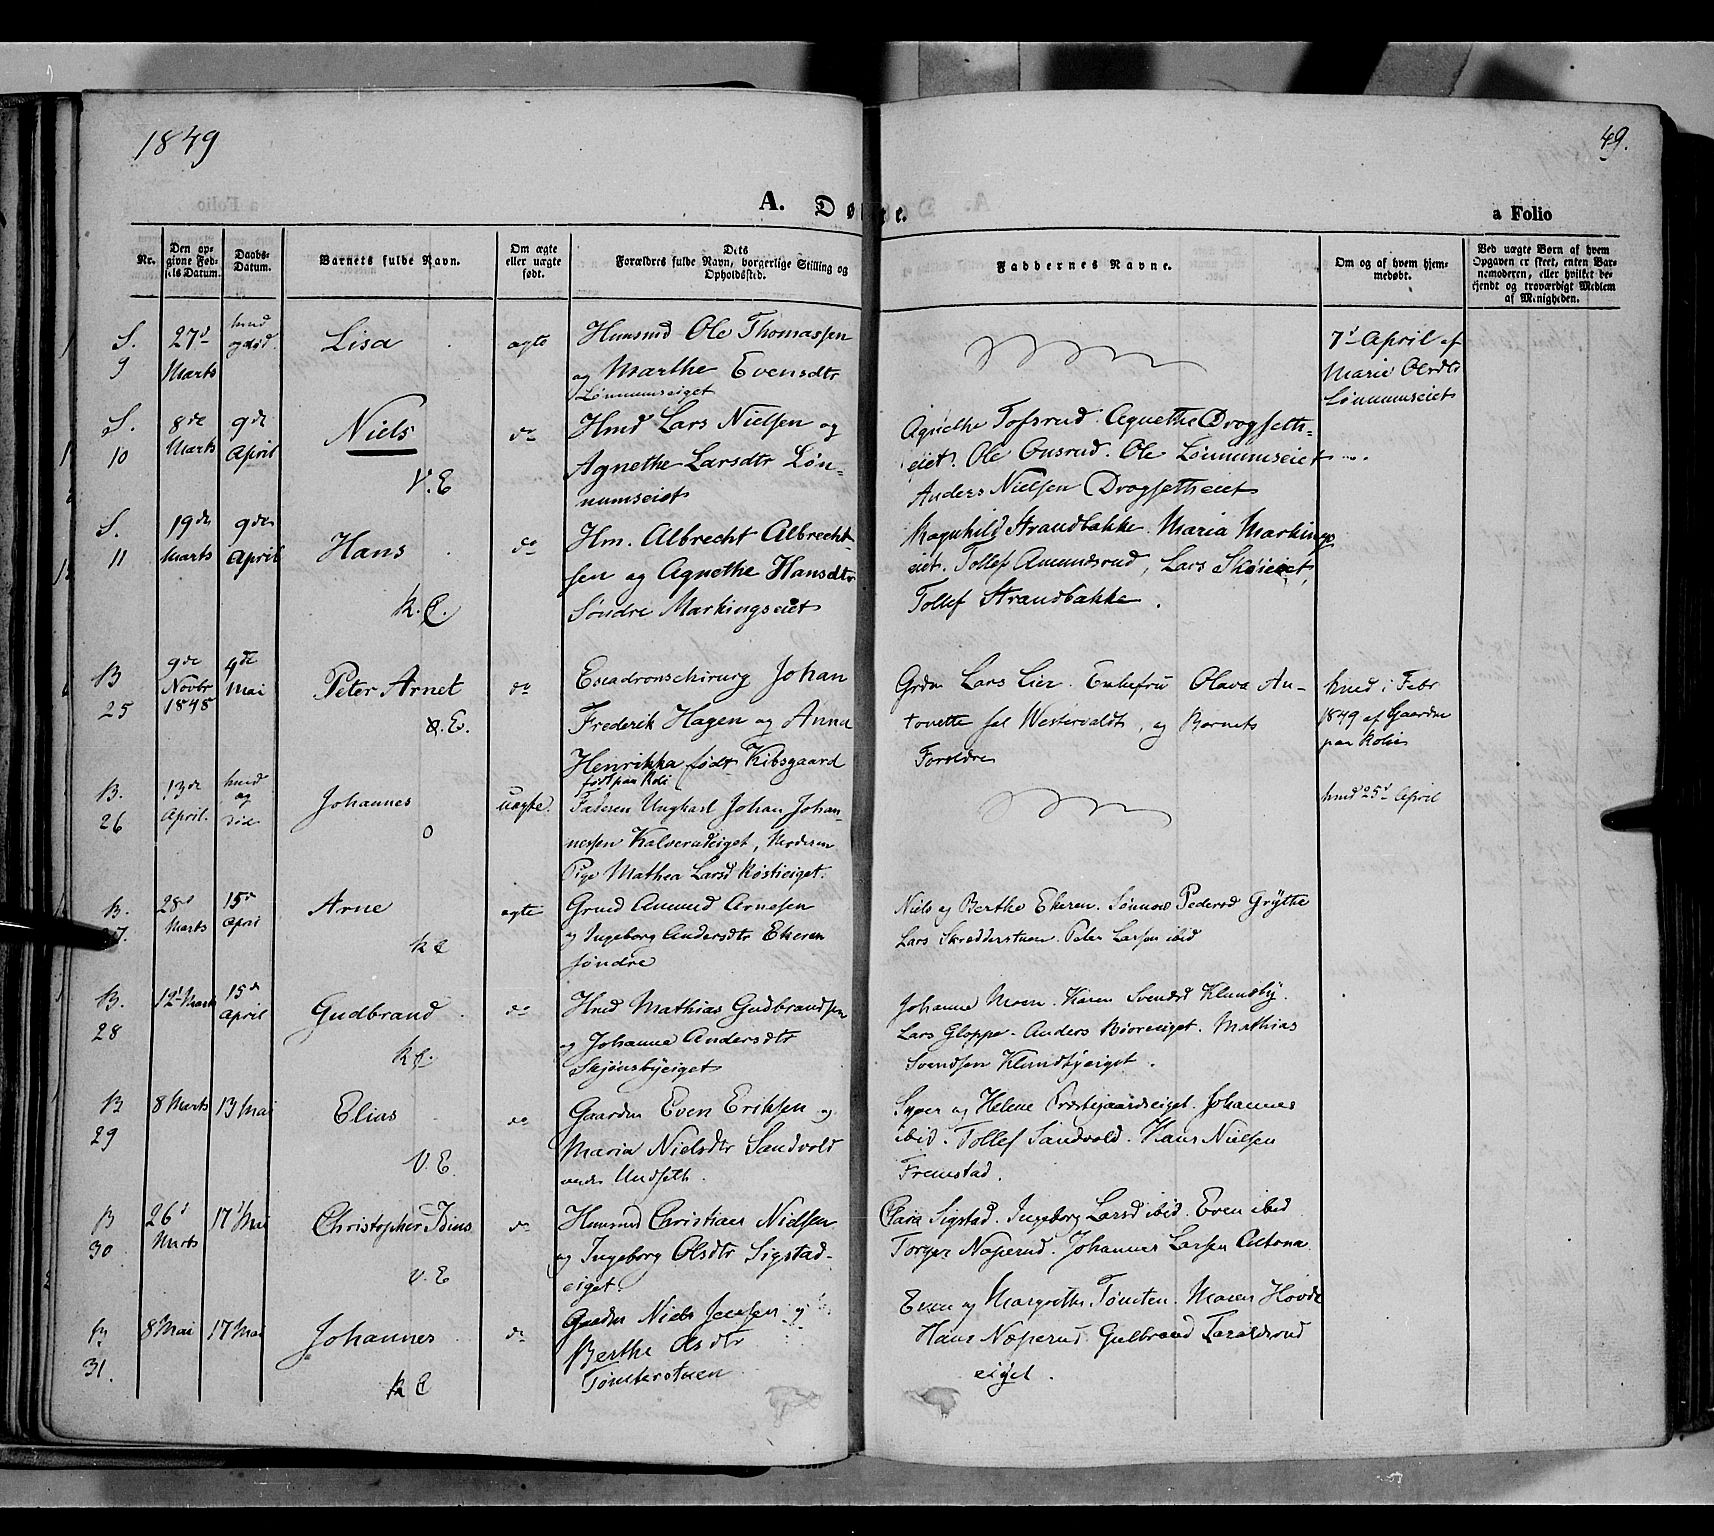 1849
49.
A. Døbte.
a Folio
Nr.
Den opgivne Fødsels Datum.
Daabs-Datum.
Barnets fulde Navn.
Om ægte eller uægte født.
Dets Forældres fulde Navn, borgerlige Stilling og Opholdssted.
Faddernes Navne.
Om og af hvem hjemmedøbt.
Ved uægte Børn af hvem Opgaven er skeet, enten Barnemoderen, eller hvilket bekjendt og troværdigt Medlem af Menigheden.
S. 9
27d Marts
hmd og død
Lisa
ægte
Huusmd Ole Thomassen
og Marthe Evensdtr
Lønnumseiget
7d April af
Marie Olsdtr
Lønnumseiet
S. 10
8de Marts
9de April
Niels
V.E
do
Hmd Lars Nielsen og
Agnethe Larsdtr Løn-
numseiet
Agnethe Tofsrud. Agnethe Drogseths-
eiet. Ole Onsrud. Ole Lønnumseiet
Anders Nielsen Drogsethseiet
S. 11
19de Marts
9de April
Hans
K.E.
do
Hm. Albrecht Albrecht-
sen og Agnethe Hansdtr
Søndre Markingseiet
Ragnhild Strandbakke. Maria Markings
eiet. Tollef Amundsrud, Lars Skøieiet,
Tollef Strandbakke.
B 25
9de Novbr 1848
9de Mai
Peter Arnet
V.E.
do
Escadronschirurg Johan
Frederik Hagen og Anna
Henrikka født Kibsgaard
født paa Roli
Grdm Lars Lier. Enkefru Olava An-
tonette sal Westervaldt, og Barnets
Forældre
hmd i Febr
1849 af Gaardm
paa Rolie
B. 26
13de April.
hmd og død
Johannes
o
uægte.
Faderen Ungkarl Johan Johan-
nessen Kalverudeiget, Moderen
Pige Mathea Larsd Røstieiget.
hmd 25d April
B. 27.
28d Marts
15d April
Arne
KE
ægte
Grmd Amund Arnesen
og Ingeborg Andersdtr Ekeren
søndre
Niels og Berthe Ekeren. Sønnøv Pedersd Grytte
Lars Skrædderstuen. Peter Larsen ibid
B. 28
12d Marts
15de April
Gudbrand
K.E.
do
Hmd Mathias Gudbrandsen
og Johanne Andersdtr
Skjønsbyeiget
Johanne Moen. Karen Svensd Klundby.
Lars Gloppe. Anders Biøreeiget. Mathias
Svendsen Klundbyeiget.
B 29
8 Marts
13 Mai
Elias
V.E.
do
Gaardm Even Eriksen og
Maria Nielsdtr Sandvold
under Undseth.
Syver og Helene Præstegaardseiget. Johannes
ibid. Tollef Sandvold. Hans Nielsen
Fremstad.
B 30
26d Marts
17d Mai
Christopher Idius
V.E
do
Huusmd Christian Nielsen
og Ingeborg Olsdtr Sigstad-
eiget
Clara Sigstad. Ingeborg Larsd ibid. Even ibid
Torger Næperud. Johannes Larsen Altona.
B 31.
8 Mai
17 Mai
Johannes
KE
do
Gaardm Niels Jensen og
Berthe Olsdtr
Tømterstuen
Even og Margrethe Tømten. Maren Hovde
Hans Næperud. Gulbrand Taraldsrud
eiget.